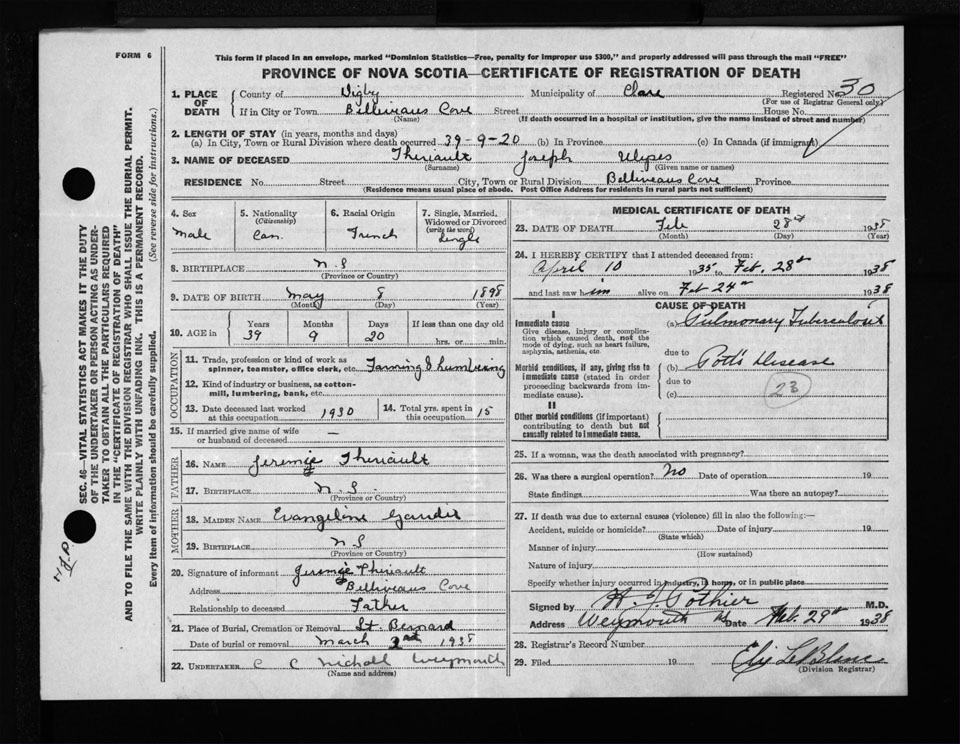 FORM 6
This form if placed in an envelope, marked "Dominion Statistics—Free, penalty for improper use $300," and properly addressed will pass through the mail "FREE"
PROVINCE OF NOVA SCOTIA—CERTIFICATE OF REGISTRATION OF DEATH
1. PLACE OF DEATH County of Digby Municipality of Clare Registered No. 30
(For use of Registrar General only)
If in City or Town Belliveaus Cove Street House No.
(Name) (If death occurred in a hospital or institution, give the name instead of street and number)
2. LENGTH OF STAY (in years, months and days)
(a) In City, Town or Rural Division where death occurred 39-9-20 (b) In Province (c) In Canada (if immigrant)
3. NAME OF DECEASED Theriault Joseph Ulyses
(Surname) (Given name or names)
RESIDENCE No. Street City, Town or Rural Division Belliveaus Cove Province
(Residence means usual place of abode. Post Office Address for residents in rural parts not sufficient)
4. Sex
male
5. Nationality
(Citizenship)
Can.
6. Racial Origin
French
7. Single, Married, Widowed or Divorced
(write the word)
Single
8. BIRTHPLACE N.S
(Province or Country)
9. DATE OF BIRTH May 8 1898
(Month) (Day) (Year)
10. AGE in Years Months Days If less than one day old
39 9 20 hrs. or min.
OCCUPATION
11. Trade, profession or kind of work as spinner, teamster, office clerk, etc. Farming & Lumbering
12. Kind of industry or business, as cotton-mill, lumbering, bank, etc.
13. Date deceased last worked at this occupation 1930
14. Total yrs. spent in this occupation 15
15. If married give name of wife or husband of deceased —
FATHER
16. NAME Jeremie Theriault
17. BIRTHPLACE N.S.
(Province or Country)
MOTHER
18. MAIDEN NAME Evangeline
19. BIRTHPLACE N S
(Province or Country)
20. Signature of informant Jeremie Theriault
Address Belliveaus Cove
Relationship to deceased Father
21. Place of Burial, Cremation or Removal St. Bernard
Date of burial or removal March 1938
22. UNDERTAKER C C Nichall Weymouth
(Name and address)
MEDICAL CERTIFICATE OF DEATH
23. DATE OF DEATH Feb 28th 1938
(Month) (Day) (Year)
24. I HEREBY CERTIFY that I attended deceased from:
April 10 1935 to Feb. 28th 1938
and last saw him alive on Feb 24th 1938
CAUSE OF DEATH
I
Immediate cause
Give disease, injury or complication which caused death, not the mode of dying, such as heart failure, asphyxia, asthenia, etc.
(a) Pulmonary Tuberculosis
Morbid conditions, if any, giving rise to immediate cause (stated in order proceeding backwards from immediate cause).
due to
(b) Pott's Disease
due to
(c)
23
II
Other morbid conditions (if important) contributing to death but not causally related to immediate cause.
25. If a woman, was the death associated with pregnancy?
26. Was there a surgical operation? No Date of operation 19
State findings Was there an autopsy?
27. If death was due to external causes (violence) fill in also the following:—
Accident, suicide or homicide? Date of injury 19
(State which)
Manner of injury
(How sustained)
Nature of injury
Specify whether injury occurred in industry, in home, or in public place
Signed by Pothier M.D.
Address Weymouth NS Date Feb. 29th 1938
28. Registrar's Record Number
29. Filed 19 Elie LeBlanc
(Division Registrar)
SEC. 46—VITAL STATISTICS ACT MAKES IT THE DUTY
OF THE UNDERTAKER OR PERSON ACTING AS UNDER-
TAKER TO OBTAIN ALL THE PARTICULARS REQUIRED
IN THE "CERTIFICATE OF REGISTRATION OF DEATH"
AND TO FILE THE SAME WITH THE DIVISION REGISTRAR WHO SHALL ISSUE THE BURIAL PERMIT.
WRITE PLAINLY WITH UNFADING INK. THIS IS A PERMANENT RECORD.
Every item of information should be carefully supplied. (See reverse side for instructions.)